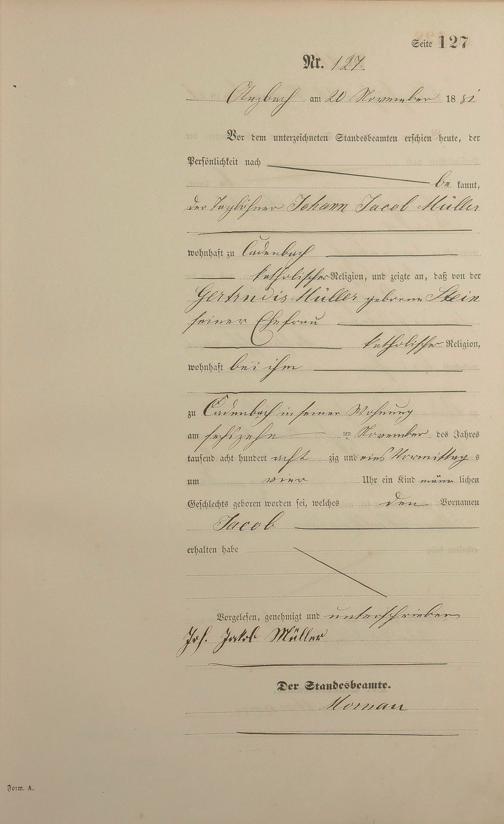 Seite 127
Nr. 127.
Arzbach am 20 November 1881
Vor dem unterzeichneten Standesbeamten erschien heute, der
Persönlichkeit nach
be kannt,
der Taglöhner Johann Jacob Müller
wohnhaft zu Cadenbach
katholischer Religion, und zeigte an, daß von der
Gertrudis Müller geborene Stein
seiner Ehefrau
katholischer Religion,
wohnhaft bei ihm
zu Cadenbach in seiner Wohnung
am sechszehn ten November des Jahres
tausend acht hundert acht zig und eins Vormittag s
um vier Uhr ein Kind männ lichen
Geschlechts geboren worden sei, welches den Vornamen
Jacob
erhalten habe
Vorgelesen, genehmigt und unterschrieben
Joh. Jakob Müller
Der Standesbeamte.
Form. A.